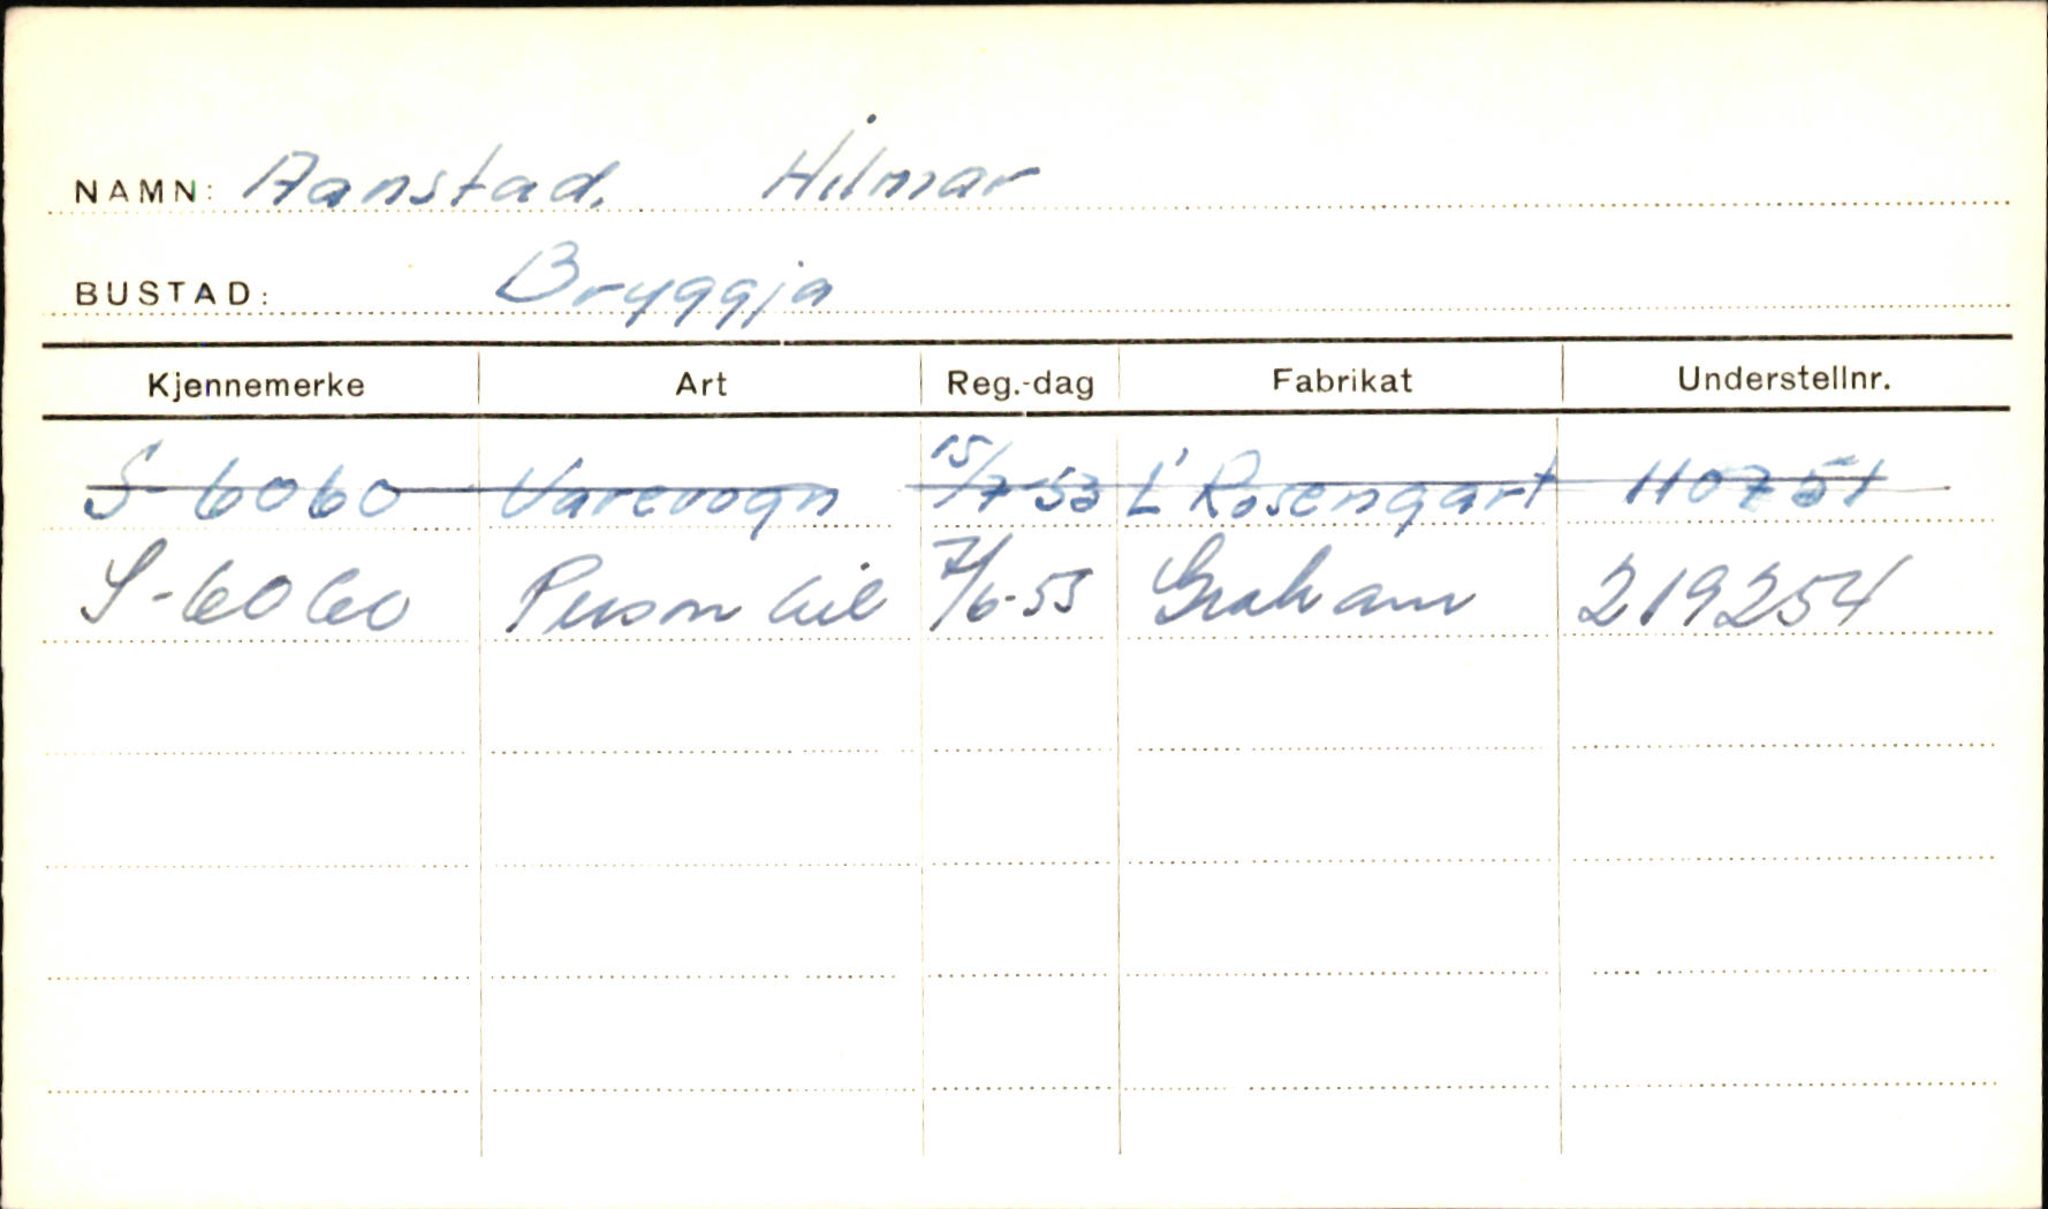 NAMN: Aanstad, Hilmar
BUSTAD: Bryggja
Kjennemerke Art Reg.-dag Fabrikat Understellnr.
S-6060 Varevogn 15/7-53 L'Rosengart 110751
S-6060 Personbil 7/6-55 Graham 219254